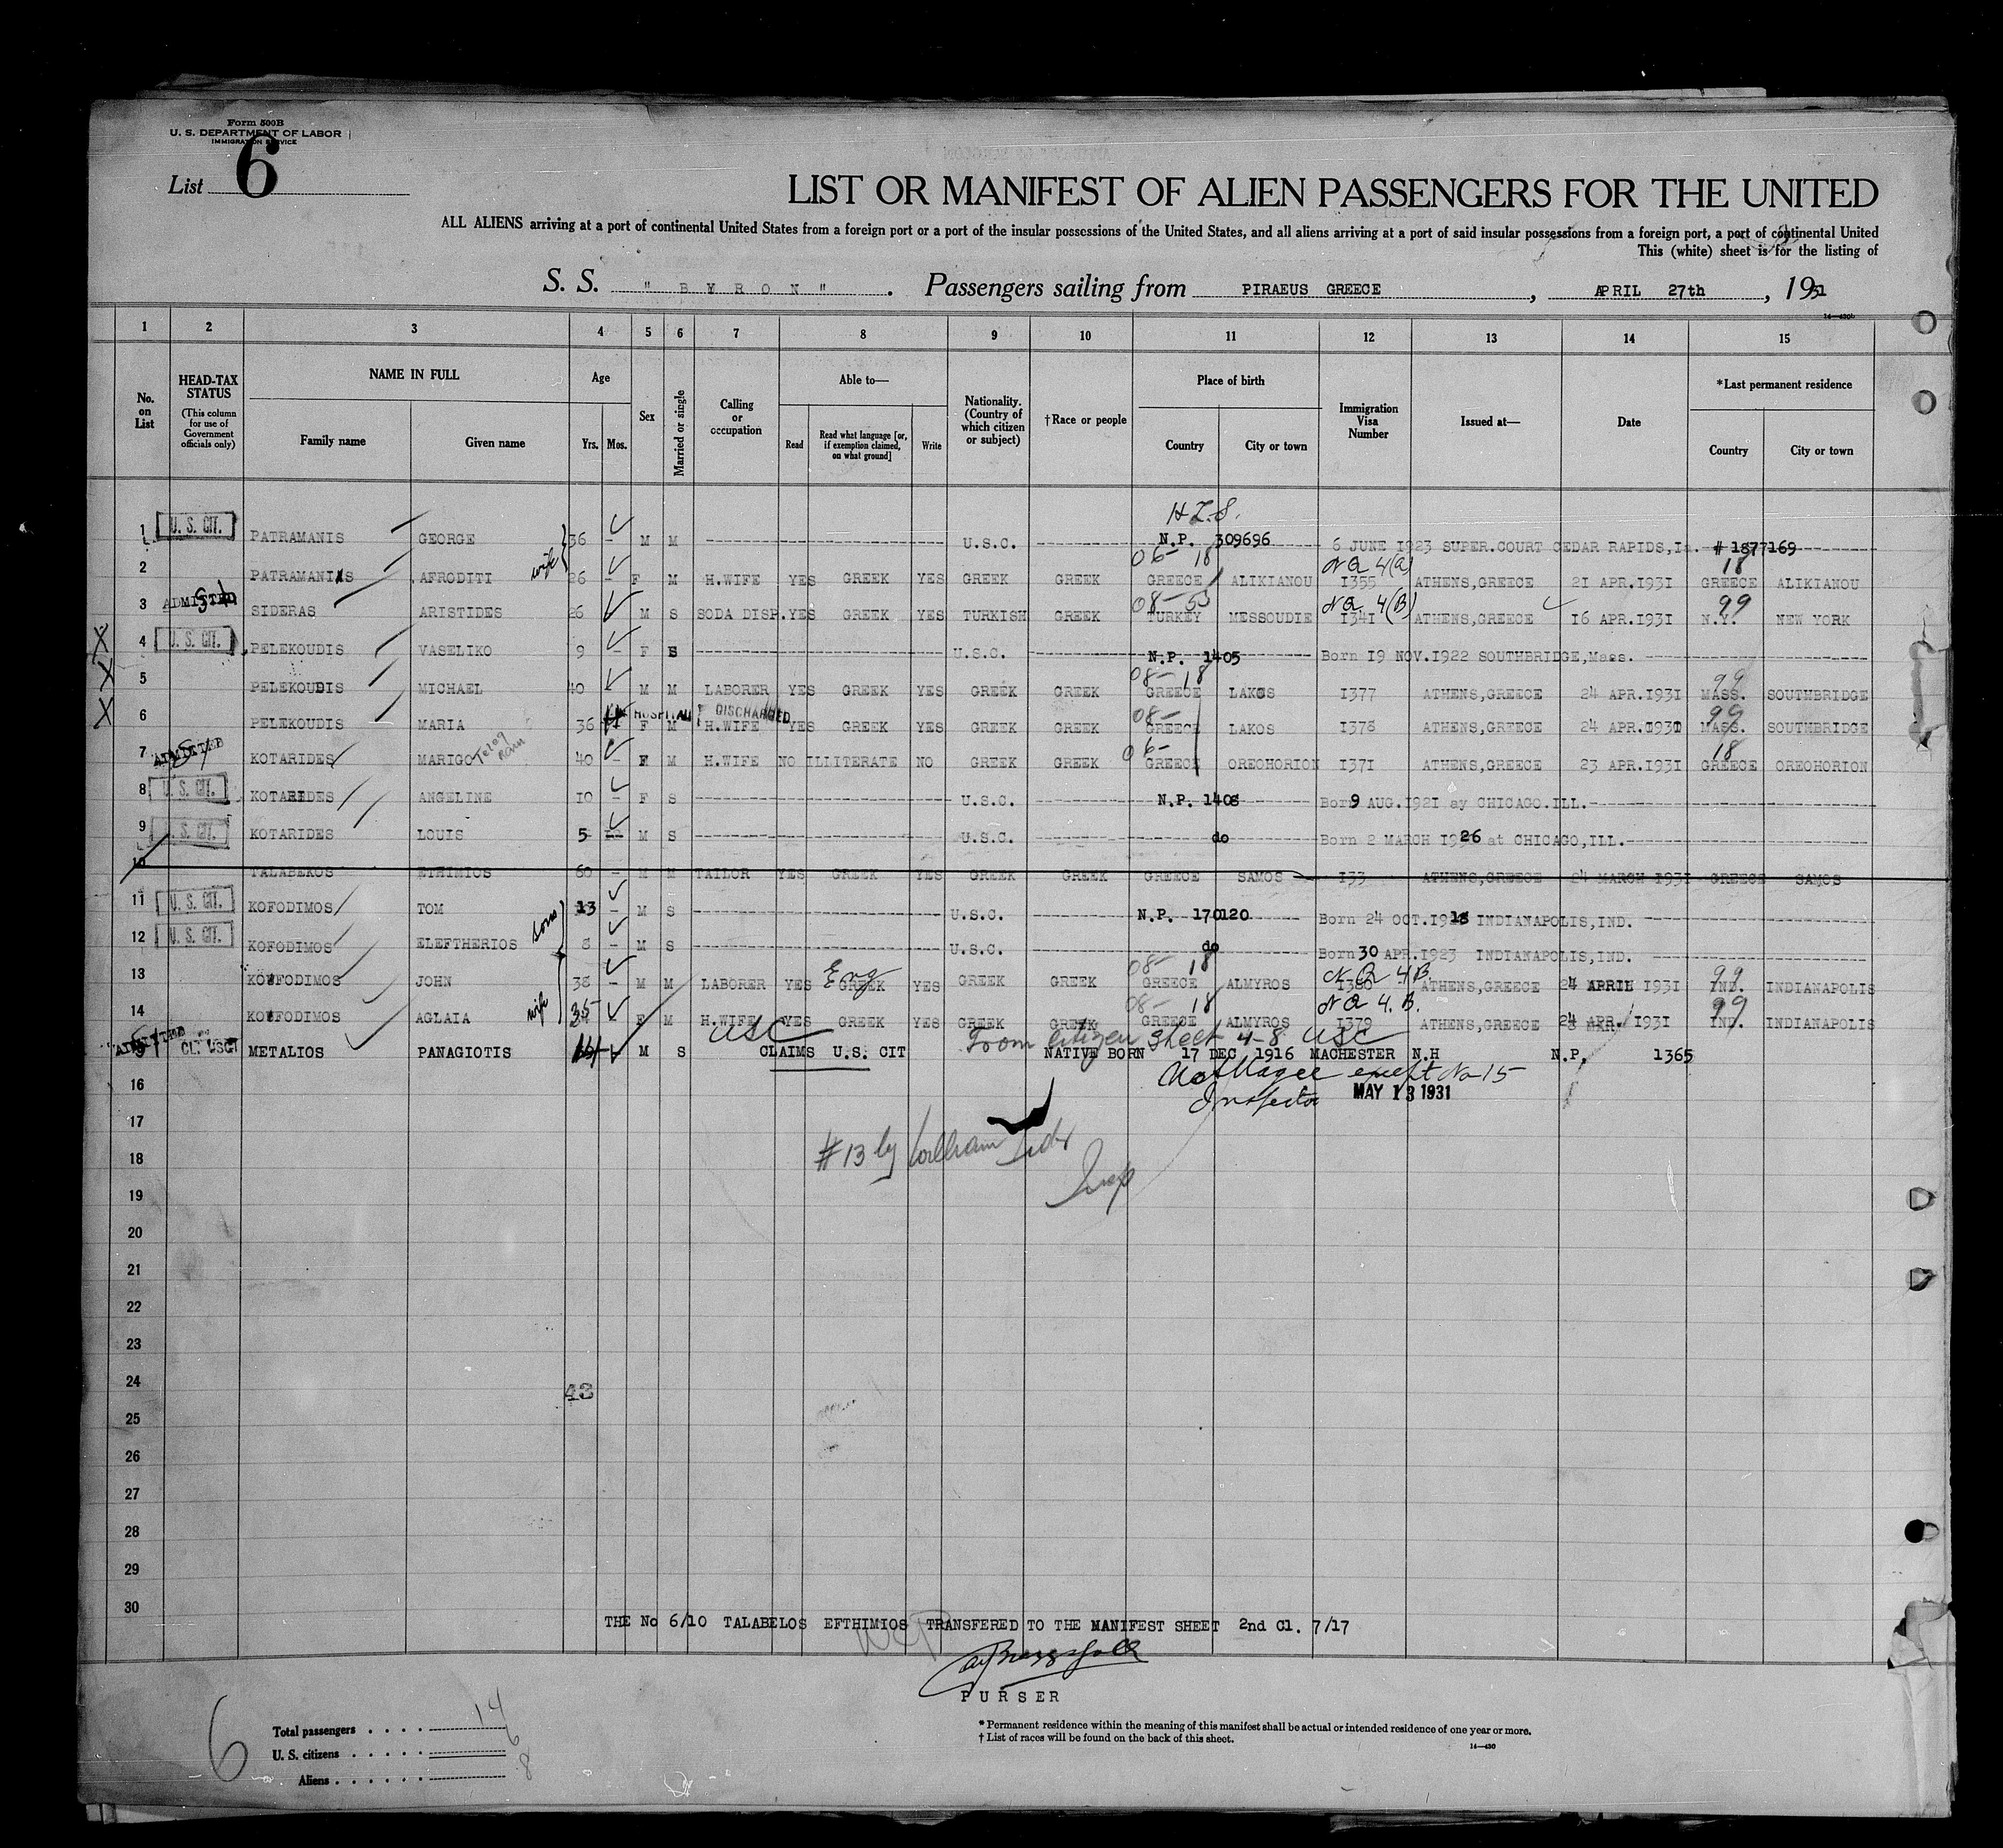 Form 500B
U. S. DEPARTMENT OF LABOR
IMMIGRATION SERVICE
List 6
LIST OR MANIFEST OF ALIEN PASSENGERS FOR THE UNITED
ALL ALIENS arriving at a port of continental United States from a foreign port or a port of the insular possessions of the United States, and all aliens arriving at a port of said insular possessions from a foreign port, a port of continental United
This (white) sheet is for the listing of
S. S. " B Y R O N " . Passengers sailing from PIRAEUS GREECE , APRIL 27th , 1931
14—430b
1 2 3 4 5 6 7 8 9 10 11 12 13 14 15
No. on List
HEAD-TAX STATUS (This column for use of Government officials only)
NAME IN FULL
Family name Given name
Age
Yrs. Mos.
Sex
Married or single
Calling or occupation
Able to—
Read Read what language [or, if exemption claimed, on what ground] Write
Nationality. (Country of which citizen or subject)
†Race or people
Place of birth
Country City or town
Immigration Visa Number
Issued at—
Date
*Last permanent residence
Country City or town
1 U. S. CIT. PATRAMANIS GEORGE 36 - M M U.S.C. N.P. 309696 6 JUNE 1923 SUPER.COURT CEDAR RAPIDS,Ia. # 1877169
wife 06- 18 NQ 4(a) 18
2 PATRAMANIS AFRODITI 26 - F M H.WIFE YES GREEK YES GREEK GREEK GREECE ALIKIANOU 1355 ATHENS,GREECE 21 APR.1931 GREECE ALIKIANOU
08- 53 NQ 4(B) 99
3 ADMITTED SIDERAS ARISTIDES 26 M S SODA DISP. YES GREEK YES TURKISH GREEK TURKEY MESSOUDIE 1341 ATHENS,GREECE 16 APR.1931 N.Y. NEW YORK
X 4 U. S. CIT. PELEKOUDIS VASELIKO 9 - F S U.S.C. N.P. 1405 Born 19 NOV.1922 SOUTHBRIDGE,Mass.
08- 18 99
X 5 PELEKOUDIS MICHAEL 40 M M LABORER YES GREEK YES GREEK GREEK GREECE LAKOS 1377 ATHENS,GREECE 24 APR.1931 MASS. SOUTHBRIDGE
HOSPITAL DISCHARGED 08- 99
X 6 PELEKOUDIS MARIA 36 F M H.WIFE YES GREEK YES GREEK GREEK GREECE LAKOS 1378 ATHENS,GREECE 24 APR.1931 MASS. SOUTHBRIDGE
06- 18
7 ADMITTED KOTARIDES MARIGO 40 - F M H.WIFE NO ILLITERATE NO GREEK GREEK GREECE OREOHORION 1371 ATHENS,GREECE 23 APR.1931 GREECE OREOHORION
8 U. S. CIT. KOTARIDES ANGELINE 10 - F S U.S.C. N.P. 1406 Born 9 AUG.1921 ay CHICAGO.ILL.
9 U. S. CIT. KOTARIDES LOUIS 5 M S U.S.C. do Born 2 MARCH 1926 at CHICAGO,ILL.
10 TALABEKOS ETHIMIOS 60 - M M TAILOR YES GREEK YES GREEK GREEK GREECE SAMOS 133 ATHENS,GREECE 24 MARCH 1931 GREECE SAMOS
11 U. S. CIT. KOFODIMOS TOM 13 - M S U.S.C. N.P. 170120 Born 24 OCT.1918 INDIANAPOLIS,IND.
sons
12 U. S. CIT. KOFODIMOS ELEFTHERIOS 8 - M S U.S.C. do Born 30 APR.1923 INDIANAPOLIS,IND.
Eng 08- 18 NQ 4B. 99
13 KOFODIMOS JOHN 38 - M M LABORER YES GREEK YES GREEK GREEK GREECE ALMYROS 1380 ATHENS,GREECE 24 APRIL 1931 IND. INDIANAPOLIS
wife 08- 18 NQ 4.B. 99
14 KOFODIMOS AGLAIA 35 F M H.WIFE YES GREEK YES GREEK GREEK GREECE ALMYROS 1379 ATHENS,GREECE 24 APR. 1931 IND. INDIANAPOLIS
USC From Citizen Sheet 4-8 USC
ADMITTED METALIOS PANAGIOTIS 14 M S CLAIMS U.S. CIT NATIVE BORN 17 DEC 1916 MACHESTER N.H N.P. 1365
16 except No 15
Inspector MAY 13 1931
17
18 #13 by
19 Insp
20
21
22
23
24 43
25
26
27
28
29
30
THE No 6/10 TALABELOS EFTHIMIOS TRANSFERED TO THE MANIFEST SHEET 2nd Cl. 7/17
PURSER
6
Total passengers . . . . 14
U. S. citizens . . . . . 6
Aliens . . . . . . 8
* Permanent residence within the meaning of this manifest shall be actual or intended residence of one year or more.
† List of races will be found on the back of this sheet.
14—430